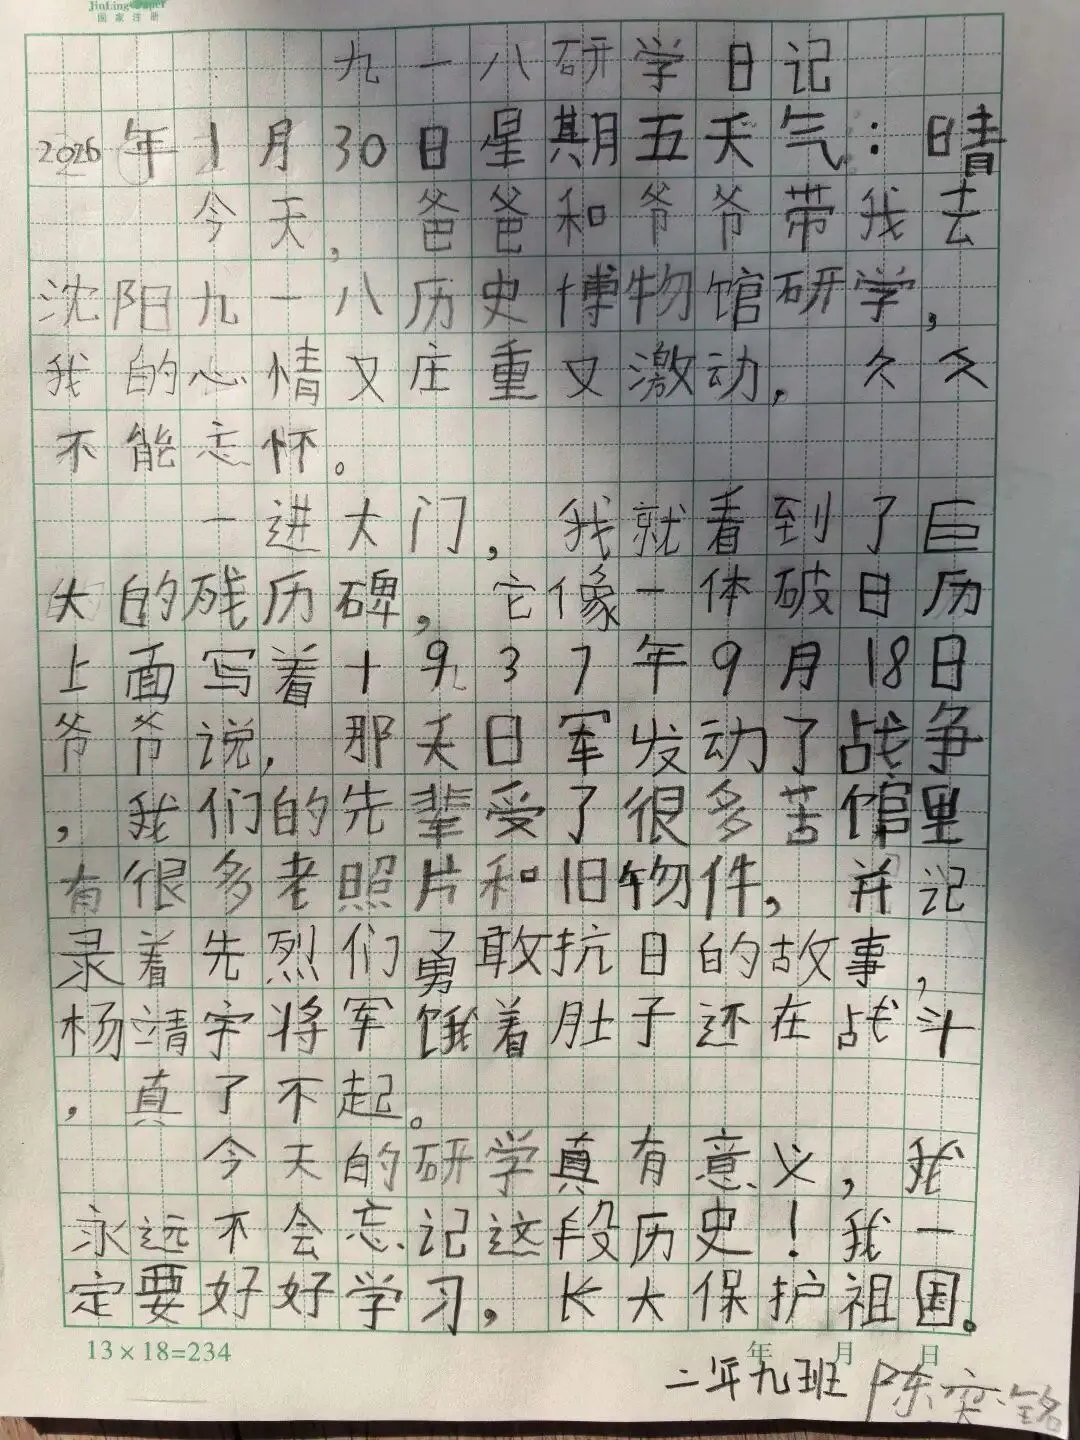 JinLing Paper
国家注册
九一八研学日记
2026年1月30日星期五天气：晴
今天，爸爸和爷爷带我去
沈阳九一八历史博物馆研学，
我的心情又庄重又激动，久久
不能忘怀。
一进大门，我就看到了巨
大的残历碑，它像一体破日历
上面写着1937年9月18日
爷爷说，那天日军发动了战争
，我们的先辈受了很多苦馆里
有很多老照片和旧物件，并记
录着先烈们勇敢抗日的故事，
杨靖宇将军饿着肚子还在战斗
，真了不起。
今天的研学真有意义，我
永远不会忘记这段历史！我一
定要好好学习，长大保护祖国。
13×18=234 年 月 日
二年九班 陈奕铭